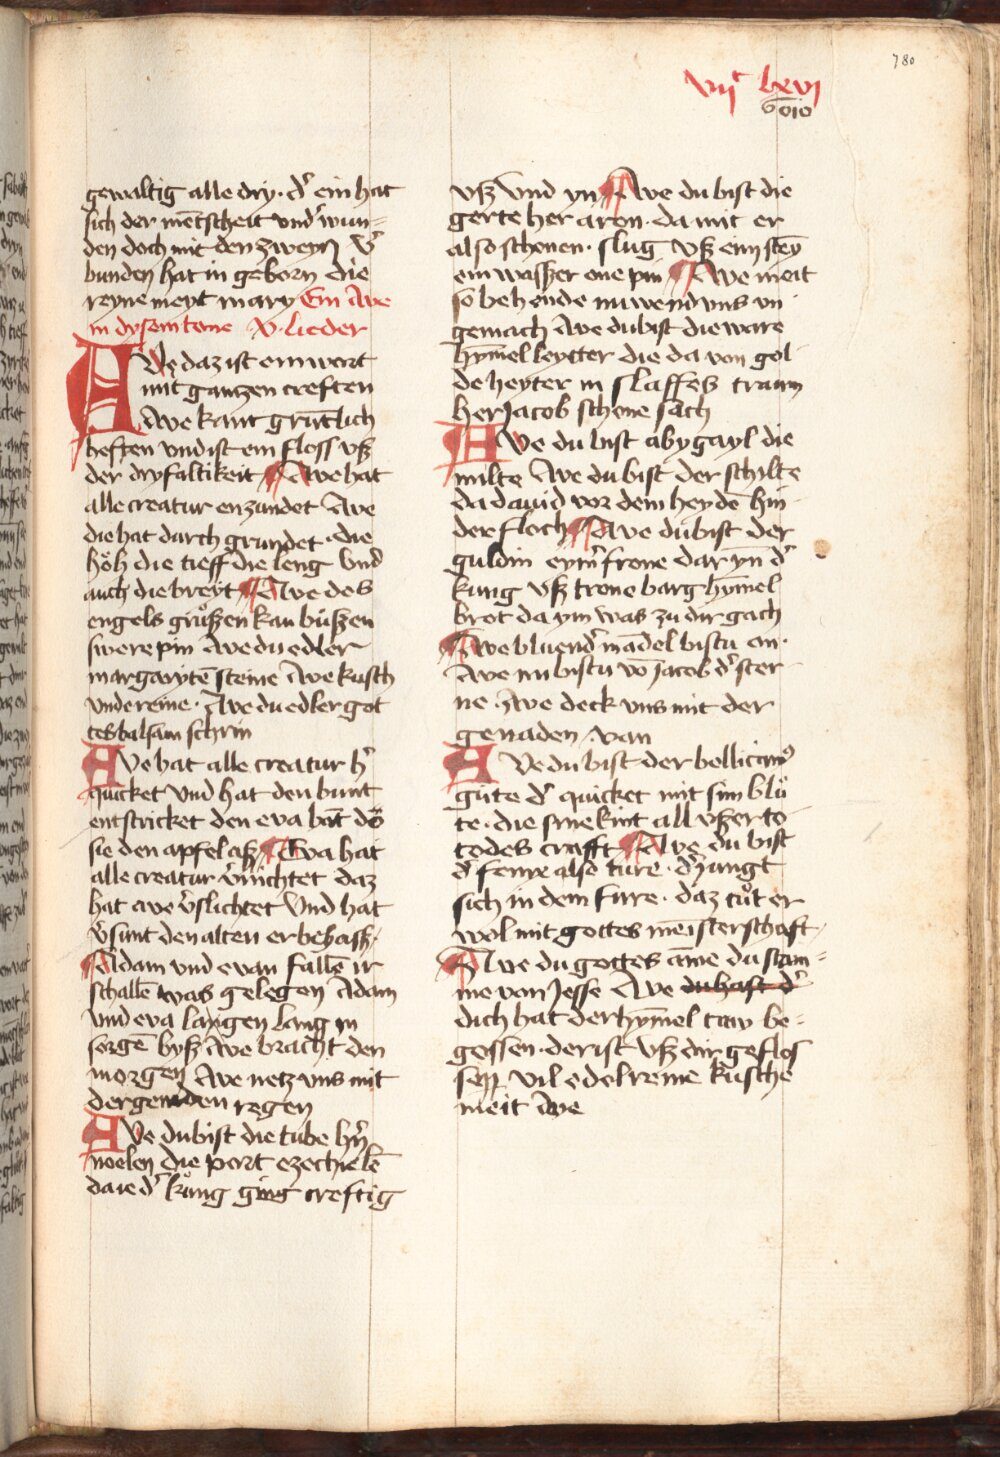 780
vijc lxvj
gewaltig alle dry · d' ein hat
sich der mētscheit vnd' wun=
den doch mit den zweyn v'
bunden hat in geborn die
reyne meyt mary Ein Ave
in dysem tone v · lieder
AVe daz ist ein wort
mit gantzen creften
Ave kant grūtlich
heften vnd ist ein floss vß
der dryfaltikeit Ave hat
alle creatur enzundet Ave
die hat durch grundet · die
höh die tieff die leng vnd
auch die breyt Ave des
engels grůßen kan bůßen
swere pin Ave du edler
margarytē steine Ave kusch
vnd reine · Ave du edler got
tes balsam schrin
AVe hat alle creatur h'
quicket vnd hat den bunt
entstricket den eva bāt do
sie den apfel aß Eva hat
alle creatur v'nichtet daz
hat ave v'slichtet Vnd hat
v'sunt den alten erbehass ·
Adam vnd evan fallē ir
schallē was gelegen Adam
vnd eva langen lang in
sorgē byß Ave bracht den
morgen Ave netz vns mit
der genaden regen
AVe du bist die tube h'n
noelen die port ezechielē
da ie d' kůng ging creftig
vß vnd yn Ave du bist die
gerte her aron · da mit er
also schonen · slug vß eim stey
ein waßzer one pin Ave meit
so behende nu wend vns vn
gemach Ave du bist die ware
hymel leytter die da von gol
de heyter in slaffes traum
her Jacob schone sach
AVe du bist abygayl die
milte Ave du bist der schilte
da dauid vor dem heydē hin
der floch Ave du bist der
guldin eym' frone dar yn d'
kung vß trone barg hymel
brot da ym was zu dir gach
Ave bluend' mādel bistu an ·
Ave nu bistu vō Jacob d' ster
ne · Ave deck vns mit der
genaden van
AVe du bist der bellican9
gute d' quicket mit sim blů
te · die sine kint all vßer to
todes crafft Ave du bist
d' fenix also ture · d' jungt
sich in dem fure · daz tůt er
wol mit gottes meisterschaft ·
Ave du gottes ame du stam=
me von Jesse Ave du hast d'
dich hat der hymel taw be=
gossen · der ist vß dir geflos
sen vil edel reine kusche
meit Ave